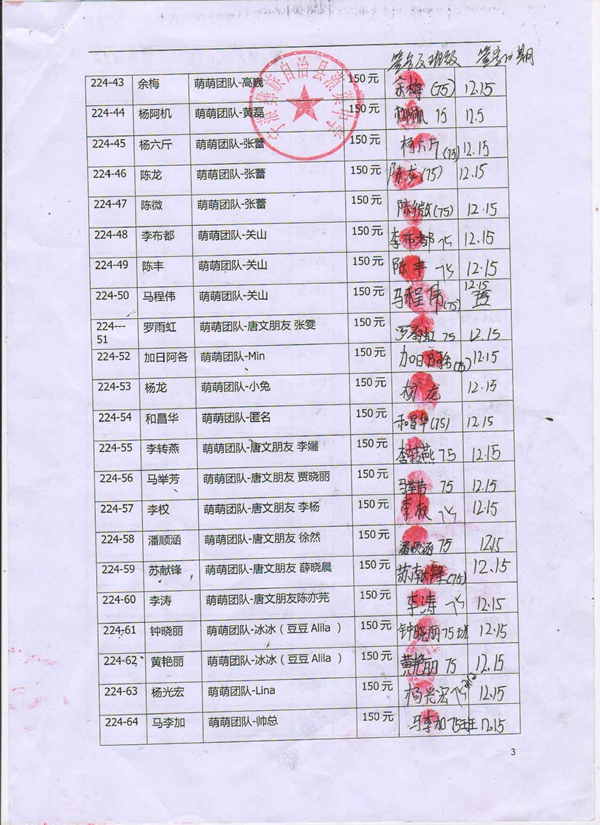 签名及班级 签字日期
224-43 余梅 萌萌团队-高巍 150元 余梅(75) 12.15
224-44 杨阿机 萌萌团队-黄磊 150元 75 12.5
224-45 杨六斤 萌萌团队-张蕾 150元 杨六斤(75) 12.15
224-46 陈龙 萌萌团队-张蕾 150元 陈龙(75) 12.15
224-47 陈微 萌萌团队-张蕾 150元 陈微(75) 12.15
224-48 李布都 萌萌团队-关山 150元 李布都 75 12.15
224-49 陈丰 萌萌团队-关山 150元 陈丰 75 12.15
224-50 马程伟 萌萌团队-关山 150元 马程伟(75) 12.15
224---51 罗雨虹 萌萌团队-唐文朋友 张雯 150元 罗雨虹 75 12.15
224-52 加日阿各 萌萌团队-Min 150元 加日阿各(75) 12.15
224-53 杨龙 萌萌团队-小兔 150元 杨龙 12.15
224-54 和昌华 萌萌团队-匿名 150元 和昌华(75) 12.15
224-55 李转燕 萌萌团队-唐文朋友 李孋 150元 李转燕 75 12.15
224-56 马举芳 萌萌团队-唐文朋友 贾晓丽 150元 马举芳 75 12.15
224-57 李权 萌萌团队-唐文朋友 李杨 150元 李权 75 12.15
224-58 潘顺涵 萌萌团队-唐文朋友 徐然 150元 潘顺涵 75 12.15
224-59 苏献锋 萌萌团队-唐文朋友 薛晓晨 150元 苏献锋(75) 12.15
224-60 李涛 萌萌团队-唐文朋友陈亦芫 150元 李涛 75 12.15
224-61 钟晓丽 萌萌团队-冰冰（豆豆 Alila ） 150元 钟晓丽 75班 12.15
224-62 黄艳丽 萌萌团队-冰冰（豆豆 Alila ） 150元 黄艳丽 75 12.15
224-63 杨光宏 萌萌团队-Lina 150元 杨光宏 75 12.15
224-64 马李加 萌萌团队-帅总 150元 马李加 75班 12.15
3